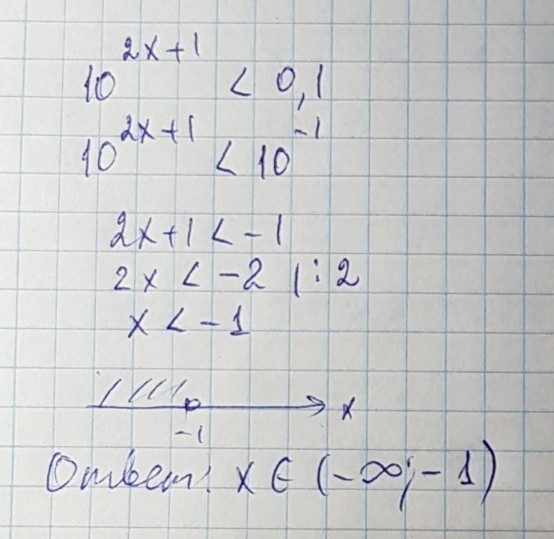 10^(2x+1) < 0,1
10^(2x+1) < 10^(-1)
2x+1 < -1
2x < -2 | : 2
x < -1
x
-1
Ответ: x ∈ (-∞; -1)